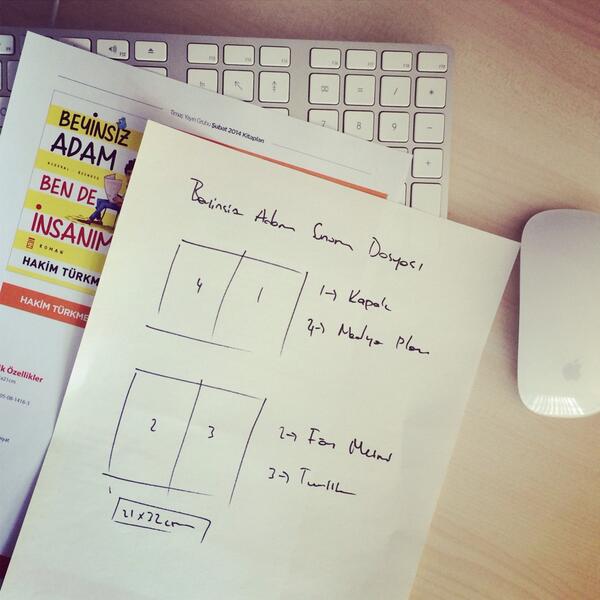 Timaş Yayın Grubu Şubat 2014 Kitapları
BEYİNSİZ
ADAM
BEN DE
İNSANIM
ROMAN
HAKİM TÜRKM
HAKİM TÜRKME
k Özellikler
Beyinsiz Adam Sunum Dosyası
4 1
1→ Kapak
4→ Medya Planı
2 3
2→ Fon Metni
3→ Tanıtım
21x32cm
7 8 9